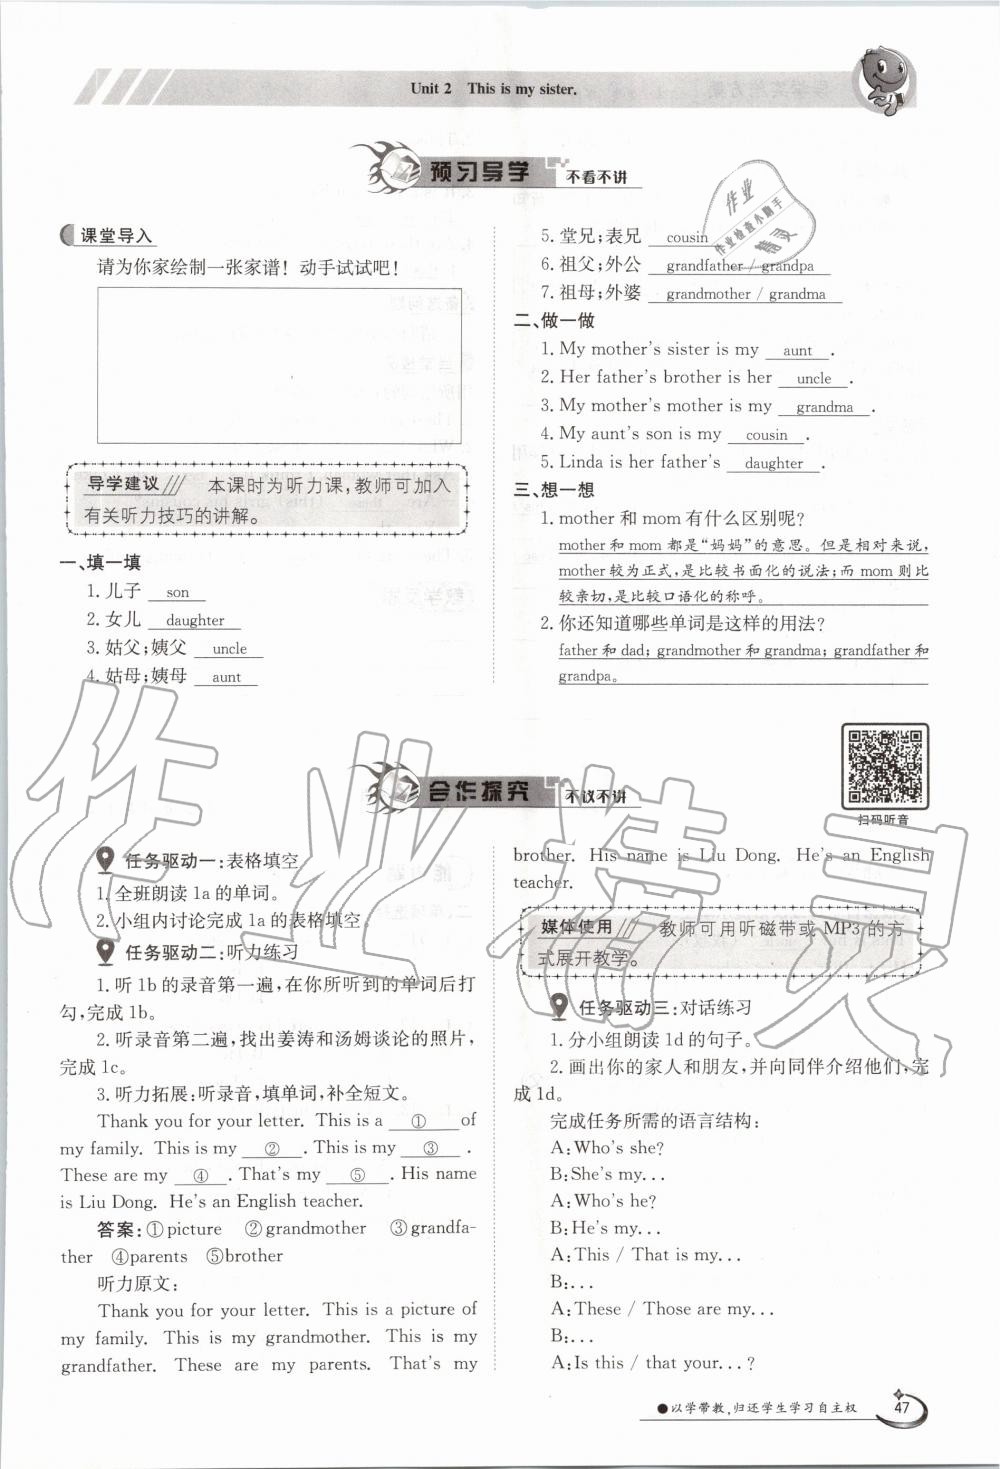 Unit 2 This is my sister.
预习导学 不看不讲
课堂导入
请为你家绘制一张家谱！动手试试吧！
导学建议 本课时为听力课,教师可加入
有关听力技巧的讲解。
一、填一填
1. 儿子 son
2. 女儿 daughter
3. 姑父;姨父 uncle
4. 姑母;姨母 aunt
5. 堂兄;表兄 cousin
6. 祖父;外公 grandfather / grandpa
7. 祖母;外婆 grandmother / grandma
二、做一做
1. My mother's sister is my aunt .
2. Her father's brother is her uncle .
3. My mother's mother is my grandma .
4. My aunt's son is my cousin .
5. Linda is her father's daughter .
三、想一想
1. mother 和 mom 有什么区别呢?
mother 和 mom 都是“妈妈”的意思。但是相对来说,
mother 较为正式,是比较书面化的说法;而 mom 则比
较亲切,是比较口语化的称呼。
2. 你还知道哪些单词是这样的用法?
father 和 dad; grandmother 和 grandma; grandfather 和
grandpa。
作业
作业检查小助手
精灵
合作探究 不议不讲
扫码听音
任务驱动一:表格填空
1. 全班朗读 1a 的单词。
2. 小组内讨论完成 1a 的表格填空。
任务驱动二:听力练习
1. 听 1b 的录音第一遍,在你所听到的单词后打
勾,完成 1b。
2. 听录音第二遍,找出姜涛和汤姆谈论的照片,
完成 1c。
3. 听力拓展:听录音,填单词,补全短文。
Thank you for your letter. This is a ① of
my family. This is my ② . This is my ③ .
These are my ④ . That's my ⑤ . His name
is Liu Dong. He's an English teacher.
答案:①picture ②grandmother ③grandfa-
ther ④parents ⑤brother
听力原文:
Thank you for your letter. This is a picture of
my family. This is my grandmother. This is my
grandfather. These are my parents. That's my
brother. His name is Liu Dong. He's an English
teacher.
媒体使用 教师可用听磁带或 MP3 的方
式展开教学。
任务驱动三:对话练习
1. 分小组朗读 1d 的句子。
2. 画出你的家人和朋友,并向同伴介绍他们,完
成 1d。
完成任务所需的语言结构:
A:Who's she?
B:She's my...
A:Who's he?
B:He's my...
A:This / That is my...
B:...
A:These / Those are my...
B:...
A:Is this / that your...?
作业精灵
●以学带教,归还学生学习自主权 47